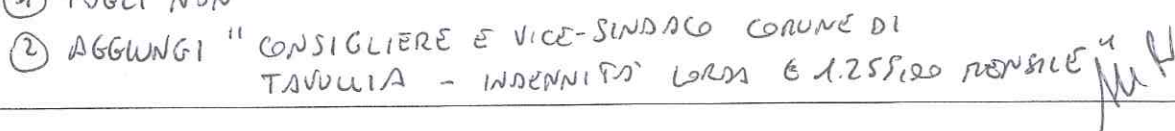 ① TOGLI NON
② AGGIUNGI "CONSIGLIERE E VICE-SINDACO COMUNE DI
TAVULLIA - INDENNITÀ LORDA € 1.255,00 MENSILE"